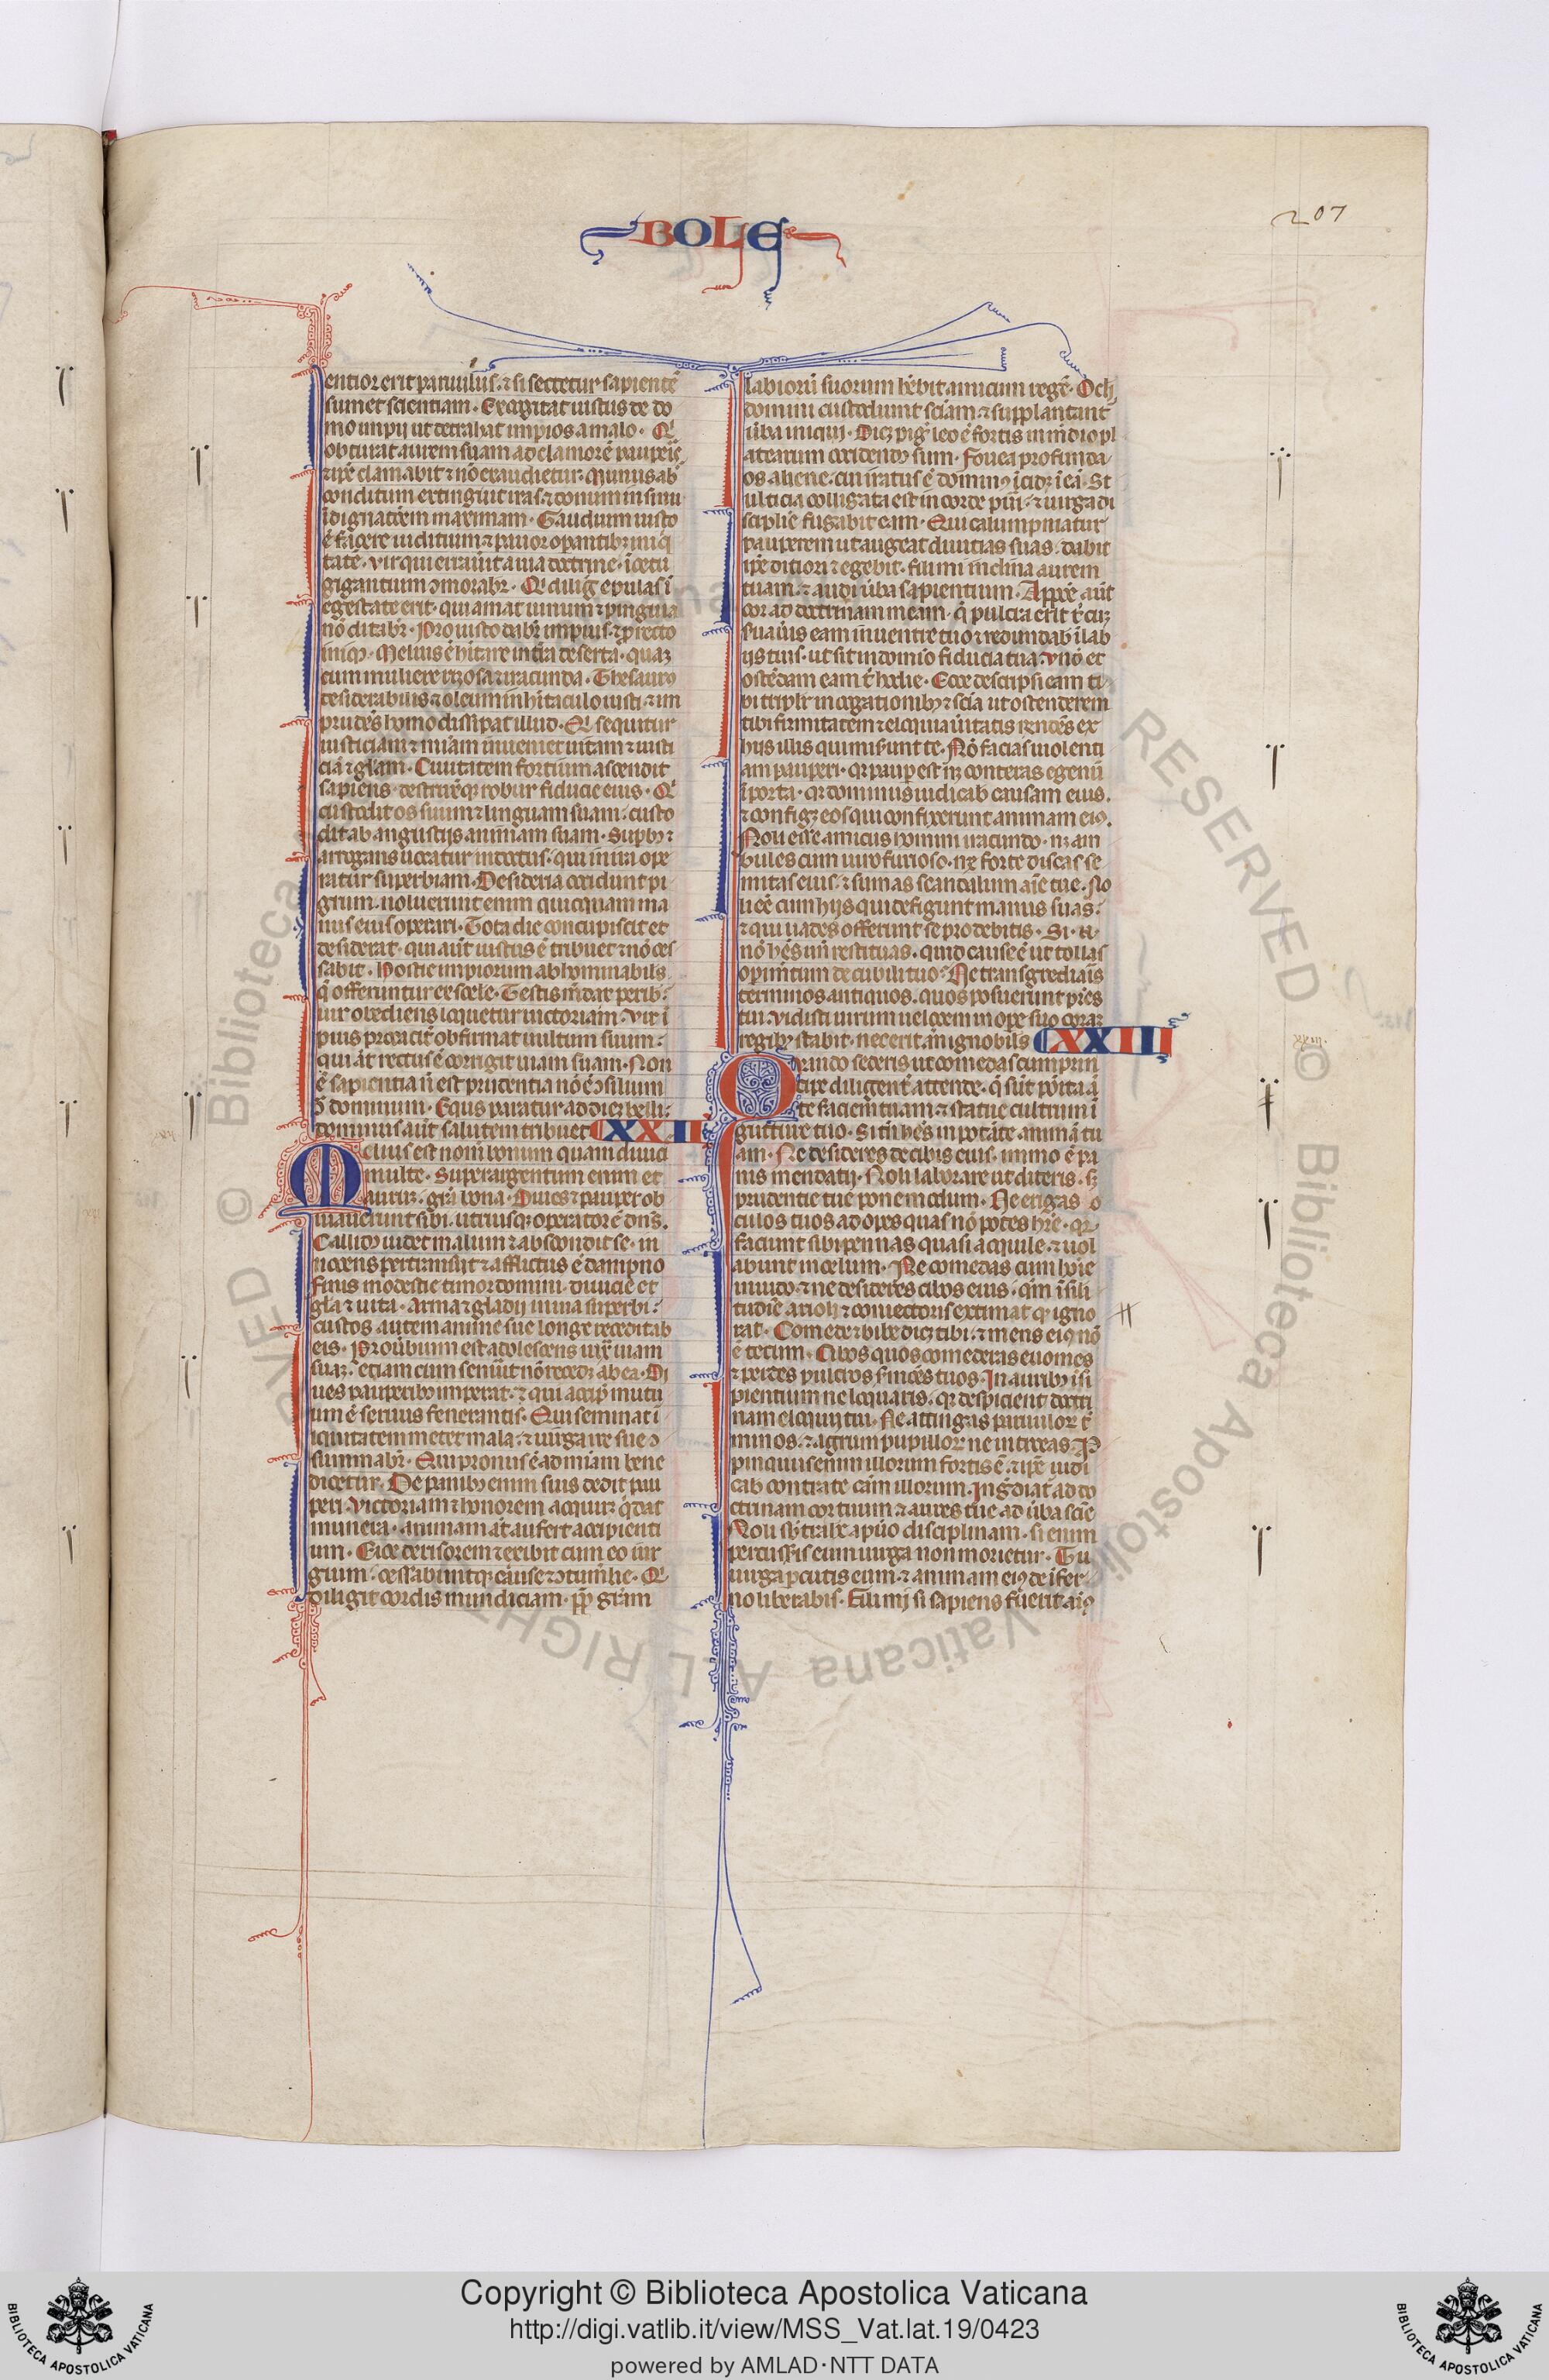 207
BOLE
entior erit paruulus. ⁊ si sectetur sapientē
sumet scientiam. Excogitat iustus de do
mo impij ut detrahat impios a malo. Qͥ
obturat aurem suam ad clamorē pauperis
⁊ ip̄e clamabit ⁊ nō exaudietur. Munus ab
conditum extinguit iras ⁊ donum in sinu
īdignatōem maximam. Gaudium iusto
ē facere iudicium ⁊ pauor operantibꝫ iniq
tatē. Vir qui errauit a uia doctrine. ī cetu
gigantium ↄmorabr̄. Qͥ diligit epulas ī
egestate erit. qui amat uinum ⁊ pinguia
nō ditabr̄. Pro iusto dabr̄ impius. ⁊ pro recto
iniquꝰ. Melius ē hītare in tr̄a deserta. quaꝫ
cum muliere rixosa ⁊ iracunda. Thesaurꝰ
desiderabilis ⁊ oleum in hītaculo iusti. ⁊ im
prudēs homo dissipat illud. Qͥ sequitur
iusticiam ⁊ mīam inueniet uitam ⁊ iusti
ciā ⁊ gl̄am. Ciuitatem fortium ascendit
sapiens. destruxitqꝫ robur fiducie eius. Qͥ
custodit os suum ⁊ linguam suam. custo
dit ab angustijs animam suam. Superbꝰ ⁊
arrogans uocatur indoctus. qui in ira ope
ratur superbiam. Desideria occidunt pi
grum. noluerunt enim quicquam ma
nus eius operari. Tota die concupiscit et
desiderat. qui aūt iustus ē tribuet ⁊ nō ces
sabit. Hostie impiorum abhominabiles.
q̄ offeruntur ex scelē. Testis mēdax peribit.
uir obediens loquetur uictoriam. Vir ī
pius procaciter obfirmat uultum suum.
qui āt rectus ē corrigit uiam suam. Non
ē sapientia n̄ est prudentia nō ē ↄsilium
ↄ̄ dominum. Equs paratur ad diem belli.
dominus aūt salutem tribuet XXII
Melius est nomen bonum quam diuici
multe. Super argentum enim et
aurum. grā bona. Diues ⁊ pauper ob
uiauerunt sibi. utriusqꝫ operator ē dn̄s.
Callidꝰ uidet malum ⁊ abscondit se. in
nocens pertransijt ⁊ afflictus ē dampno
Finis modestie timor domini. diuicie et
gl̄a ⁊ uita. Arma ⁊ gladij in uia superbi.
custos autem anime sue longe recedit ab
eis. Prouerbium est adolescens iuxta uiam
suaꝫ. etiam cum senuerit nō recedet ab ea. Di
ues pauperibꝫ imperat. ⁊ qui accipit mutu
um ē seruus fenerantis. Qui seminat ī
iquitatem metet mala. ⁊ uirga ire sue ↄ
summabr̄. Qui pronus ē ad mīam bene
dicetur. De panibꝫ enim suis dedit pau
peri. Victoriam ⁊ honorem acquiret q̄ dat
munera. animam āt aufert accipienti
um. Eice derisorem ⁊ exibit cum eo iur
gium. cessabuntqꝫ cause ⁊ ↄtumelie. Qͥ
diligit cordis mundiciam. pp̄ grām
labiorū suorum hēbit amicum regē. Och
domini custodiunt sciām ⁊ supplantant
ūba iniqui. Dicet piger leo ē foris in medio pl
atearum occidendꝰ sum. Fouea profunda
os aliene. cui iratus ē dominꝰ īcidet ī eā. St
ulticia colligata est in corde pueri. ⁊ uirga di
sciplie fugabit eam. Qui calumpniatur
pauperem ut augeat diuitias suas. dabit
ip̄e ditiori ⁊ egebit. Fili mi inclina aurem
tuam. ⁊ audi ūba sapientium. Appōe aūt
cor ad doctrinam meam. q̄ pulcra erit t̄ cuꝫ
suaūis eam in uentre tuo ⁊ redundabit ī lab
ijs tuis. ut sit in domīo fiducia tua. Vn̄ et
ostēdam eam t̄ hodie. Ecce descripsi eam ti
bi triplr̄ in cogationibꝫ ⁊ scīa ut ostenderem
tibi firmitatem ⁊ eloquia ūitatis rendēs ex
hijs illis qui miserunt te. Nō facias uiolenti
am pauperi. qꝛ pauper est neqꝫ conteras egenū
ī porta. qꝛ dominus iudicabit causam eius.
⁊ configet eos qui confixerunt animam eiꝰ.
Noli esse amicus homini iracundo. neqꝫ am
bules cum uiro furioso. ne forte discas se
mitas eius. ⁊ sumas scandalum aīe tue. No
li eē cum hijs qui defigunt manus suas.
⁊ qui uades offerunt se pro debitis. Si. n̄.
nō hēs un̄ restituas. quid cause ē ut tollas
operimentum de cubili tuo. Ne transgrediaris
terminos antiquos. quos posuerunt pr̄es
tui. Vidisti uirum uelocem in opere suo coraꝫ
regibꝫ stabit. nec erit añ ignobiles XXIII
Quando sederis ut comedas cum prin
cipe diligenter attende. q̄ sūt pōita añ
te faciem tuam. ⁊ statue cultrum ī
gutture tuo. Si tn̄ hēs in potāte animā tu
am. Ne desideres de cibis eius. immo ē pa
nis mendatij. Noli laborare ut diteris. sꝫ
prudentie tue pone modum. Ne erigas o
culos tuos ad opes quas nō potes hr̄e. qꝛ
faciunt sibi pennas quasi aquile. ⁊ uol
abunt in celum. Ne comedas cum hoīe
inuido. ⁊ ne desideres cibos eius. qm̄ ī sili
tudīe arioli ⁊ coniectoris extimat qꝛ igno
rat. Comede ⁊ bibe dicet tibi. ⁊ mens eiꝰ nō
ē tecum. Cibos quos comederas euomes
⁊ perdes pulcros sermōes tuos. In auribꝫ īsi
pientium ne loquaris. qꝛ despicient doctri
nam eloquij tui. Ne attingas paruuloꝝ t̄
minos. ⁊ agrum pupilloꝝ ne introeas. P
pinquus enim illorum fortis ē. ⁊ ip̄e iudi
cabit contra te cām illorum. Ingrediat̄ ad do
ctrinam cor tuum ⁊ aures tue ad ūba scīe
Noli sb̄trahere a puero disciplinam. si enim
percusseris eum uirga non morietur. Tu
uirga percutis eum. ⁊ animam eiꝰ de īfer
no liberabis. Fili mi si sapiens fuerit aīꝰ
Copyright © Biblioteca Apostolica Vaticana
http://digi.vatlib.it/view/MSS_Vat.lat.19/0423
powered by AMLAD·NTT DATA
BIBLIOTECA APOSTOLICA VATICANA
BIBLIOTECA APOSTOLICA VATICANA